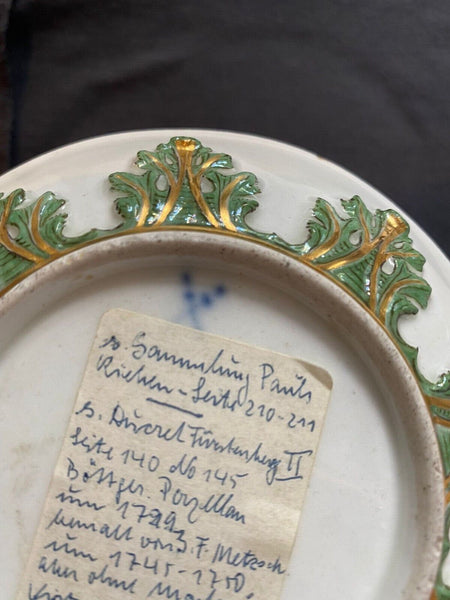 s. Sammlung Pauls
Riehen - Seite 210-211
s. Ducret Fürstenberg II
Seite 140 No 145
Böttger. Porzellan
um 1723
bemalt von J. F. Metzsch
um 1745-1750.
aber ohne